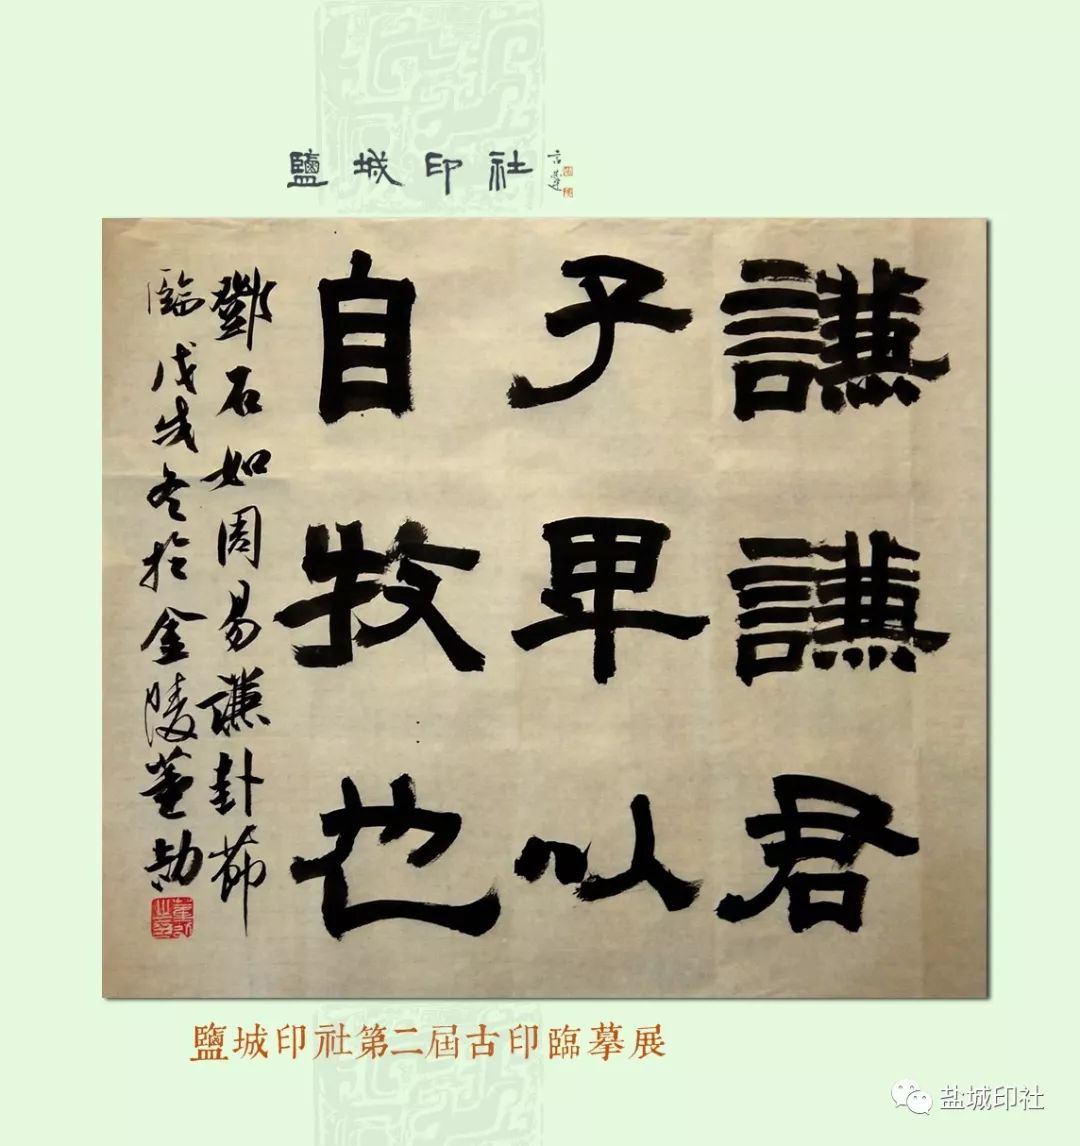 鹽城印社
謙謙君
子卑以
自牧也
鄧石如周易謙卦節
臨戊戌冬於金陵董勛
鹽城印社第二屆古印臨摹展
盐城印社